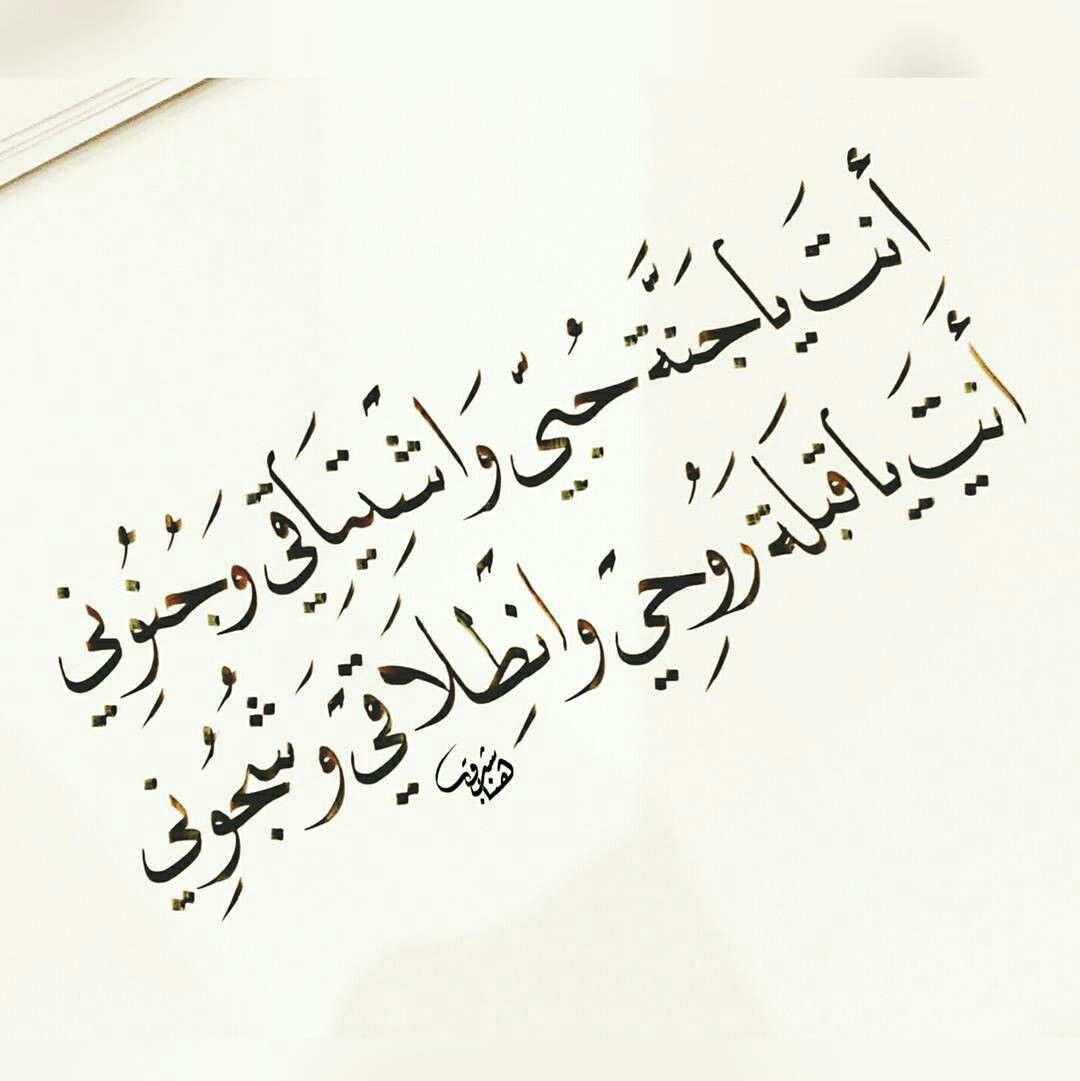 أَنتَ يا جَنَّةَ حُبّي وَاشْتِيَاقي وَجُنُوني
أَنتَ يا قبلَةَ رُوحي وَانْطِلَاقي وَشُجُوني